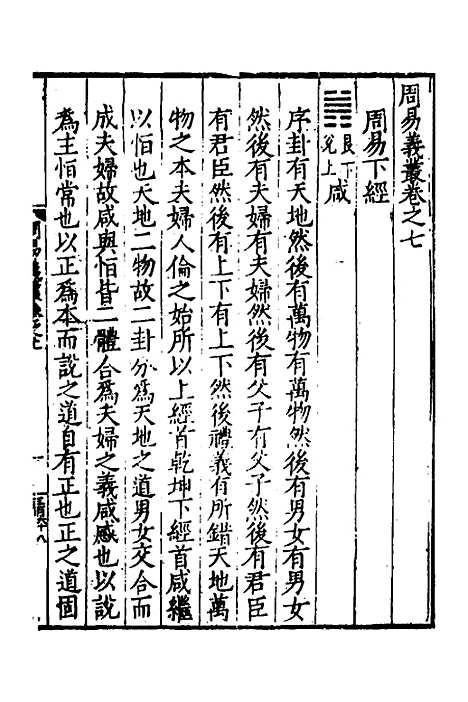 周易義叢卷之七
周易下經
艮下
兌上
咸
序卦有天地然後有萬物有萬物然後有男女有男女
然後有夫婦有夫婦然後有父子有父子然後有君臣
有君臣然後有上下有上下然後禮義有所錯天地萬
物之本夫婦人倫之始所以上經首乾坤下經首咸繼
以恒也天地二物故二卦分爲天地之道男女交合而
成夫婦故咸與恒皆二體合爲夫婦之義咸感也以說
爲主恒常也以正爲本而說之道自有正也正之道固